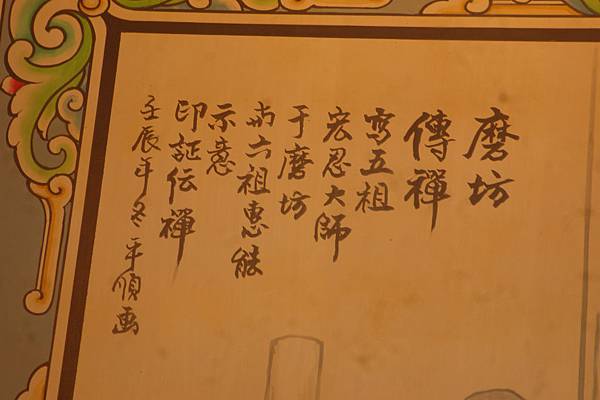 磨坊
傳禪
寫五祖
宏忍大師
于磨坊
與六祖惠能
示意
印証伝禪
壬辰年冬平順画